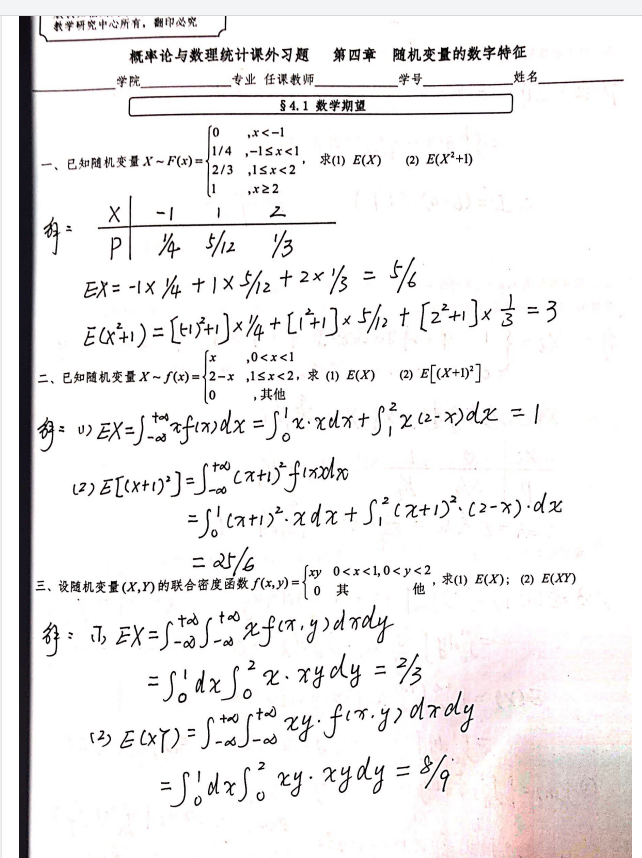 教学研究中心所有，翻印必究
概率论与数理统计课外习题 第四章 随机变量的数字特征
学院 专业 任课教师 学号 姓名
§4.1 数学期望
一、已知随机变量 X~F(x)={0 ,x<-1; 1/4 ,-1≤x<1; 2/3 ,1≤x<2; 1 ,x≥2, 求(1) E(X) (2) E(X²+1)
解: X | -1 1 2
P | 1/4 5/12 1/3
EX = -1×1/4 + 1×5/12 + 2×1/3 = 5/6
E(X²+1) = [(-1)²+1]×1/4 + [1²+1]×5/12 + [2²+1]×1/3 = 3
二、已知随机变量 X~f(x)={x ,0<x<1; 2-x ,1≤x<2; 0 ,其他, 求 (1) E(X) (2) E[(X+1)²]
解: (1) EX=∫_{-∞}^{+∞} xf(x)dx = ∫_0^1 x·xdx + ∫_1^2 x(2-x)dx = 1
(2) E[(X+1)²] = ∫_{-∞}^{+∞} (x+1)² f(x)dx
= ∫_0^1 (x+1)²·xdx + ∫_1^2 (x+1)²·(2-x)·dx
= 25/6
三、设随机变量(X,Y)的联合密度函数 f(x,y)={xy 0<x<1,0<y<2; 0 其 他, 求(1) E(X); (2) E(XY)
解: (1) EX=∫_{-∞}^{+∞}∫_{-∞}^{+∞} xf(x,y)dxdy
= ∫_0^1 dx∫_0^2 x·xydy = 2/3
(2) E(XY) = ∫_{-∞}^{+∞}∫_{-∞}^{+∞} xy·f(x,y)dxdy
= ∫_0^1 dx∫_0^2 xy·xydy = 8/9